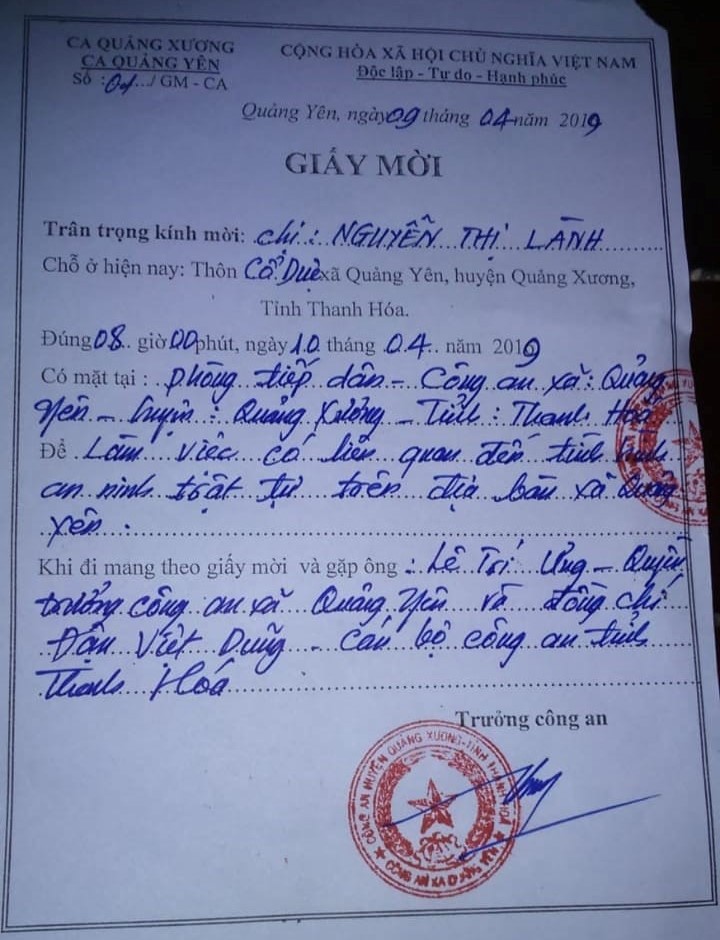 CA QUẢNG XƯƠNG
CA QUẢNG YÊN
Số :01.../ GM - CA
CỘNG HÒA XÃ HỘI CHỦ NGHĨA VIỆT NAM
Độc lập - Tự do - Hạnh phúc
Quảng Yên, ngày 09 tháng 04 năm 2019
GIẤY MỜI
Trân trọng kính mời: chị : NGUYỄN THỊ LÀNH
Chỗ ở hiện nay: Thôn Cổ Duệ xã Quảng Yên, huyện Quảng Xương,
Tỉnh Thanh Hóa.
Đúng 08 giờ 00 phút, ngày 10 tháng 04 năm 2019
Có mặt tại : phòng tiếp dân - Công an xã : Quảng
Yên - huyện : Quảng Xương - Tỉnh : Thanh Hoá
Để Làm việc có liên quan đến tình hình
an ninh trật tự trên địa bàn xã Quảng
Yên .
Khi đi mang theo giấy mời và gặp ông : Lê Trí Ưng - Quyền
trưởng công an xã Quảng Yên và đồng chí
Đậu Việt Dũng - Cán bộ công an tỉnh
Thanh Hoá
Trưởng công an
CÔNG AN HUYỆN QUẢNG XƯƠNG-TỈNH THANH HOÁ
CÔNG AN XÃ QUẢNG YÊN